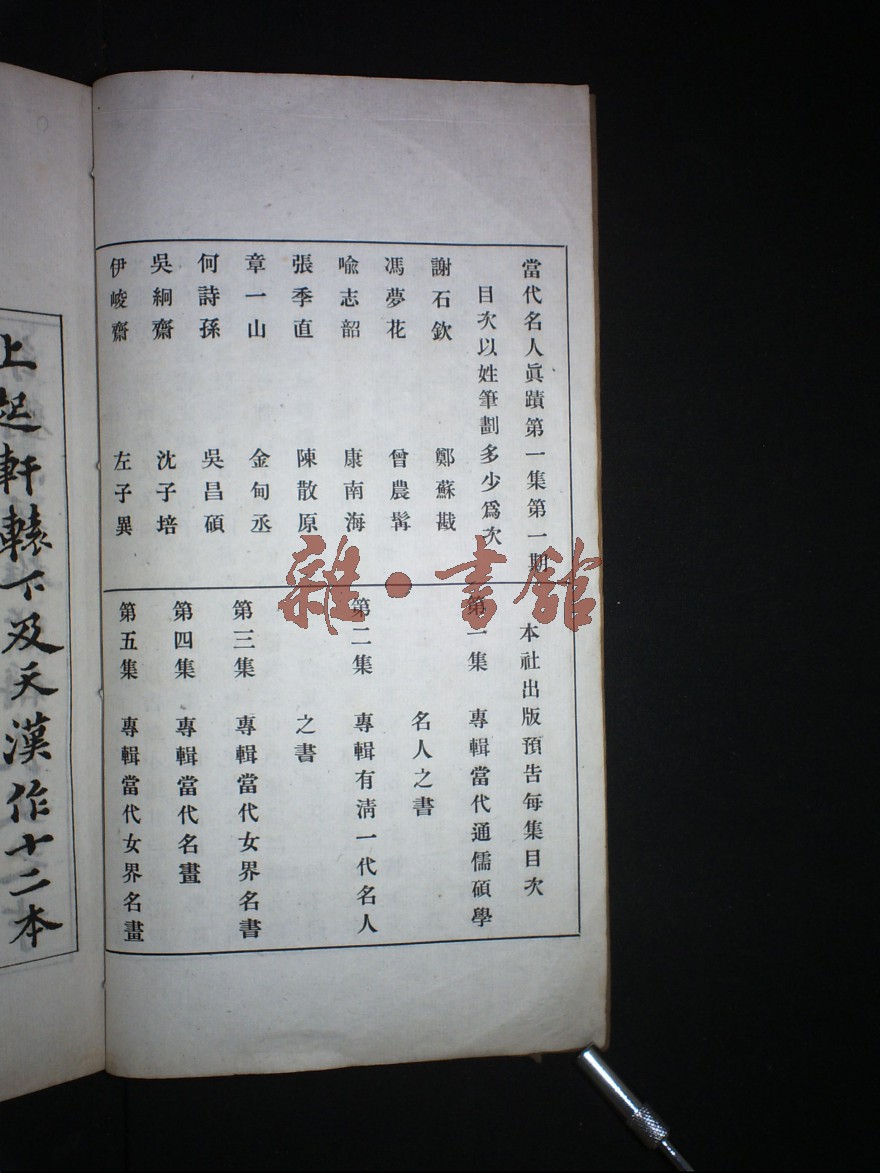 當代名人眞蹟第一集第一期
目次以姓筆劃多少爲次
謝石欽
鄭蘇戡
馮夢花
曾農髯
喩志韶
康南海
張季直
陳散原
章一山
金甸丞
何詩孫
吳昌碩
吳絅齋
沈子培
伊峻齋
左子異
本社出版預告每集目次
第一集 專輯當代通儒碩學
名人之書
第二集 專輯有淸一代名人
之書
第三集 專輯當代女界名書
第四集 專輯當代名畫
第五集 專輯當代女界名畫
上起軒轅下及天漢作十二本
雜·書館